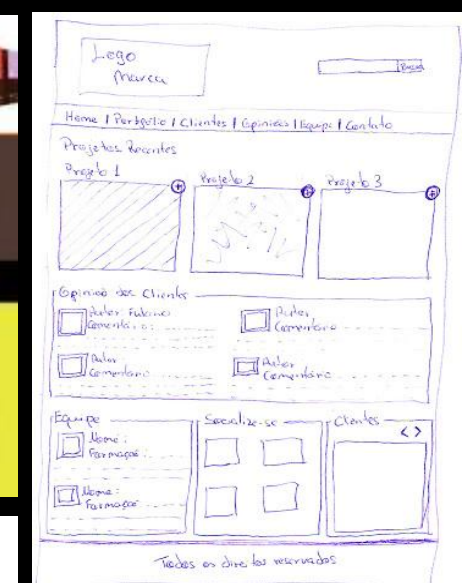 Logo
Marca
Buscar
Home | Portfólio | Clientes | Opiniões | Equipe | Contato
Projetos Recentes
Projeto 1
Projeto 2
Projeto 3
Opinião dos Clientes
Autor: Fulano
Comentário:
Autor
Comentário
Autor
Comentário
Autor
Comentário
Equipe
Nome:
Formação:
Nome:
Formação:
Socialize-se
Clientes
< >
Todos os direitos reservados